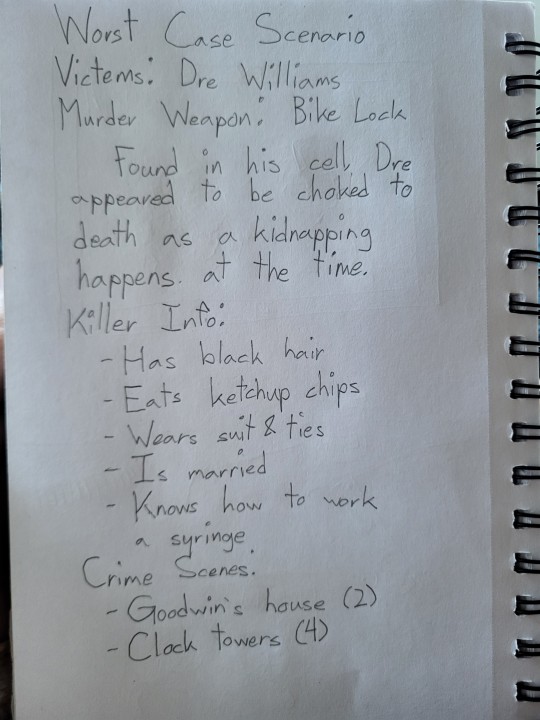 Worst Case Scenario
Victems: Dre Williams
Murder Weapon: Bike Lock
Found in his cell, Dre
appeared to be choked to
death as a kidnapping
happens. at the time.
Killer Info:
- Has black hair
- Eats ketchup chips
- Wears suit & ties
- Is married
- Knows how to work
a syringe
Crime Scenes:
- Goodwin's house (2)
- Clock towers (4)